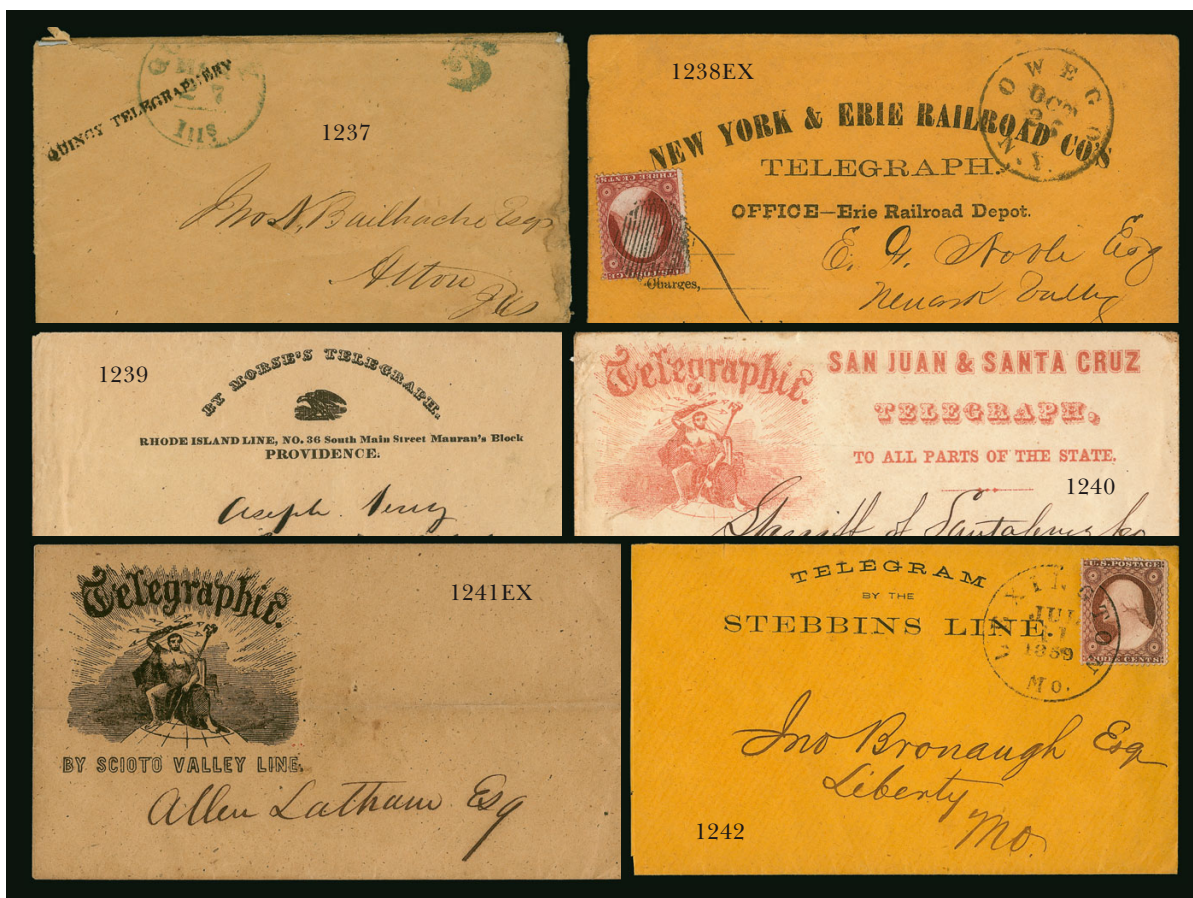 QUINCY TELEGRAPHERY
7
Ills
5
1237
Jno N, Bailhache Esqr
Alton
Ills
1238EX
OWEGO
OCT
N.Y.
NEW YORK & ERIE RAILROAD CO'S
TELEGRAPH.
OFFICE—Erie Railroad Depot.
THREE CENTS
Charges,
E. H. Noble Esq
Newark Valley
1239
BY MORSE'S TELEGRAPH.
RHODE ISLAND LINE, NO. 36 South Main Street Mauran's Block
PROVIDENCE.
Joseph
Telegraphic.
SAN JUAN & SANTA CRUZ
TELEGRAPH,
TO ALL PARTS OF THE STATE.
1240
Sheriff of Santa Cruz Co
Telegraphic.
1241EX
BY SCIOTO VALLEY LINE.
Allen Latham Esq
TELEGRAM
BY THE
STEBBINS LINE.
LEXINGTON
JUL
1859
Mo.
U.S. POSTAGE
THREE CENTS
Jno Bronaugh Esq
Liberty
Mo.
1242